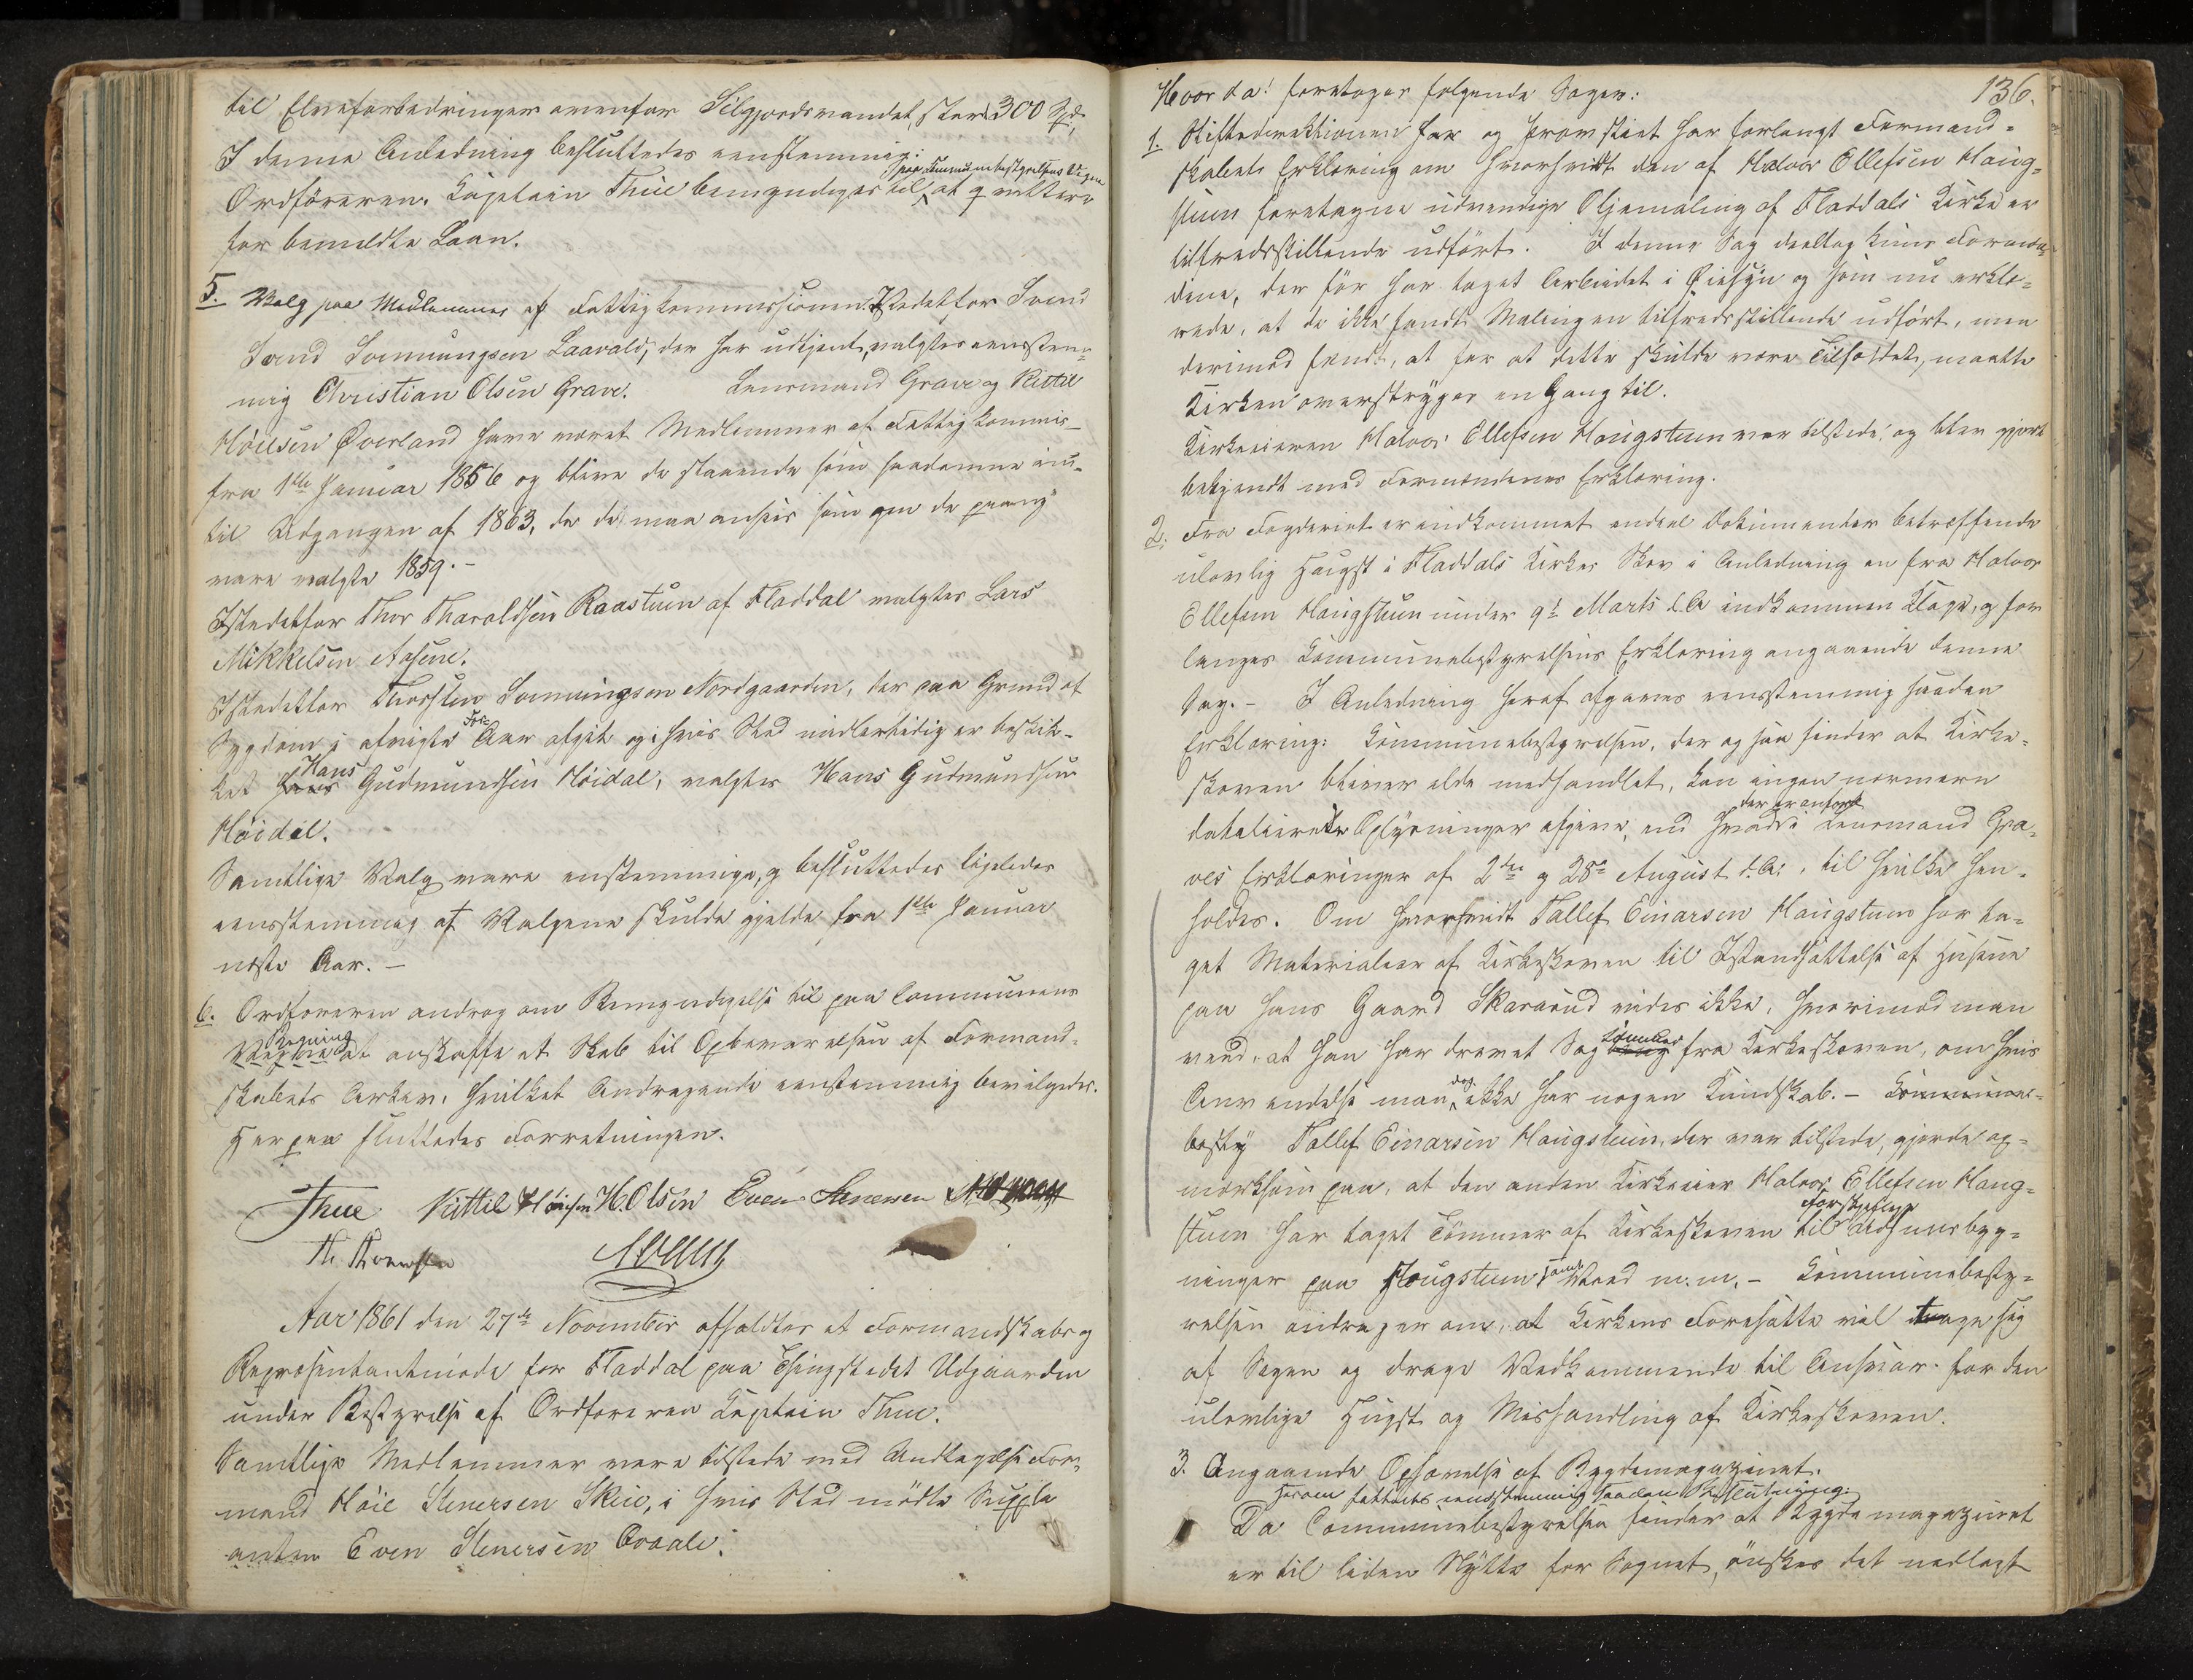 til Elveforbedringer ovenfor Silgjordsvandet, stort 300 Spd.
I denne Anledning besluttedes eenstemmig:
Ordföreren, Kaptein Thue bemyndiges til paa Kommunebestyrelsens Vegne at qvittere
for bemeldte Laan.
5. Valg paa Medlemmer af Fattigkommissionen. Istedetfor Svend
Sond Sonmungsen Laavald, der har udtjent, valgtes eenstem-
mig Christian Olsen Grave. Lensmand Grave og Kittil
Höiesen Överland have været Medlemmer af Fattigkommis-
fra 1ste Januar 1856 og blive de staaende som saadanne ind-
til Udgangen af 1863, da de maa ansees som om de paany
vare valgte 1859.-
Istedetfor Thor Tharaldsen Raastuen af Fladdal valgtes Lars
Mikkelsen Aasene.
Istedetfor Thorsten Sonmungsen Nordgaarden, der paa Grund af
Sygdom i afvigte For Aar afgik og i hvis Sted midlertidig er beskik-
ket Hans Gudmundsen Höidal, valgtes Hans Gudmundsen
Höidal.
Samtlige Valg vare enstemmige, og besluttedes ligeledes
eensstemmig at Valgene skulde gjelde fra 1ste Januar
næste Aar.-
6. Ordföreren androg om Bemyndigelse til paa Communens
Regning at anskaffe et Skab til Opbevarelsen af Formand-
skabets Arkiv, hvilket Andragende eenstemmig bevilgedes.
Herpaa sluttedes Forretningen.
Thue Kittil Höiesen H. Olsen Even Stenersen
Aar 1861 den 27de November afholdtes et Formandskabs og
Repræsentantmöde for Fladdal paa Thingstedet Udgaarden
under Bestyrelse af Ordföreren Kaptein Thue.
Samtlige Medlemmer vare tilstede med Undtagelse For-
mand Höie Stenersen Skeie, i hvis Sted mödte Supple
anten Even Stenersen Aavale.
136.
Hvorda! foretoges følgende Sager:
1. Stiftsdirektionen har og Provstiet har forlangt Formand-
skabets Erklæring om hvorvidt den af Halvor Ellefsen Haug-
stuen foretagne udvendige Oljemaling af Fladdals Kirke er
tilfredsstillende udfört. I denne Sag deeltog kuns Formæn-
dene, der för har taget Arbeidet i Öiesyn og som nu erklæ-
rede, at de ikke fandt Malingen tilfredsstillende udfört, men
derimod fandt, at for at dette skulde være Tilfældet, maatte
Kirken overstryges en Gang til.
Kirkeeieren Halvor Ellefsen Haugstuen var tilstede, og blev gjort
bekjendt med Formændenes Erklæring.
2. Fra Fogderiet er indkommet endeel Dokumenter betræffende
ulovlig Hugst i Fladdals Kirkes Skov i Anledning en fra Halvor
Ellefsen Haugstuen under 9de Marts d.A. indkommen Klage, og for
langes Kommunebestyrelsens Erklæring angaaende denne
Sag.- I Anledning heraf afgaves eenstemmig saadan
Erklæring: Kommunebestyrelsen, der ogsaa finder at Kirke-
skoven bliver ilde medhandlet, kan ingen nærmere
detaillerede Oplysninger afgive, end hvad der er anfört i Lensmand Gra-
ves Erklæringer af 2den og 28de August d.A., til hvilke hen-
holdes. Om hvorvidt Tallef Einarsen Haugstuen har ta-
get Materialier af Kirkeskoven til Istandsættelse af Husene
paa hans Gaard Skararud vides ikke, hvorimod man
veed, at han har drevet Sag tömmer fra Kirkeskoven, om hvis
Anvendelse man dog ikke har nogen Kundskab.- Kommune-
besty Tallef Einarsen Haugstuen, der var tilstede, gjorde op-
mærksom paa, at den anden Kirkeeier Halvor Ellefsen Haug-
stuen har taget Tömmer af Kirkeskoven til forskjellige Udhuusbyg-
ninger paa Haugstuen samt Veed m.m.- Kommunebesty-
relsen andrager om, at Kirkens Foresatte vil tage sig
af Sagen og drage Vedkommende til Ansvar for den
ulovlige Hugst og Mishandling af Kirkeskoven.
3. Angaaende Ophævelse af Bygdemagazinet.
Herom fattedes eenstemmig saadan Beslutning:
Da Communebestyrelsen finder at Bygdemagazinet
er til liden Nytte for Sognet, önskes det nedlagt